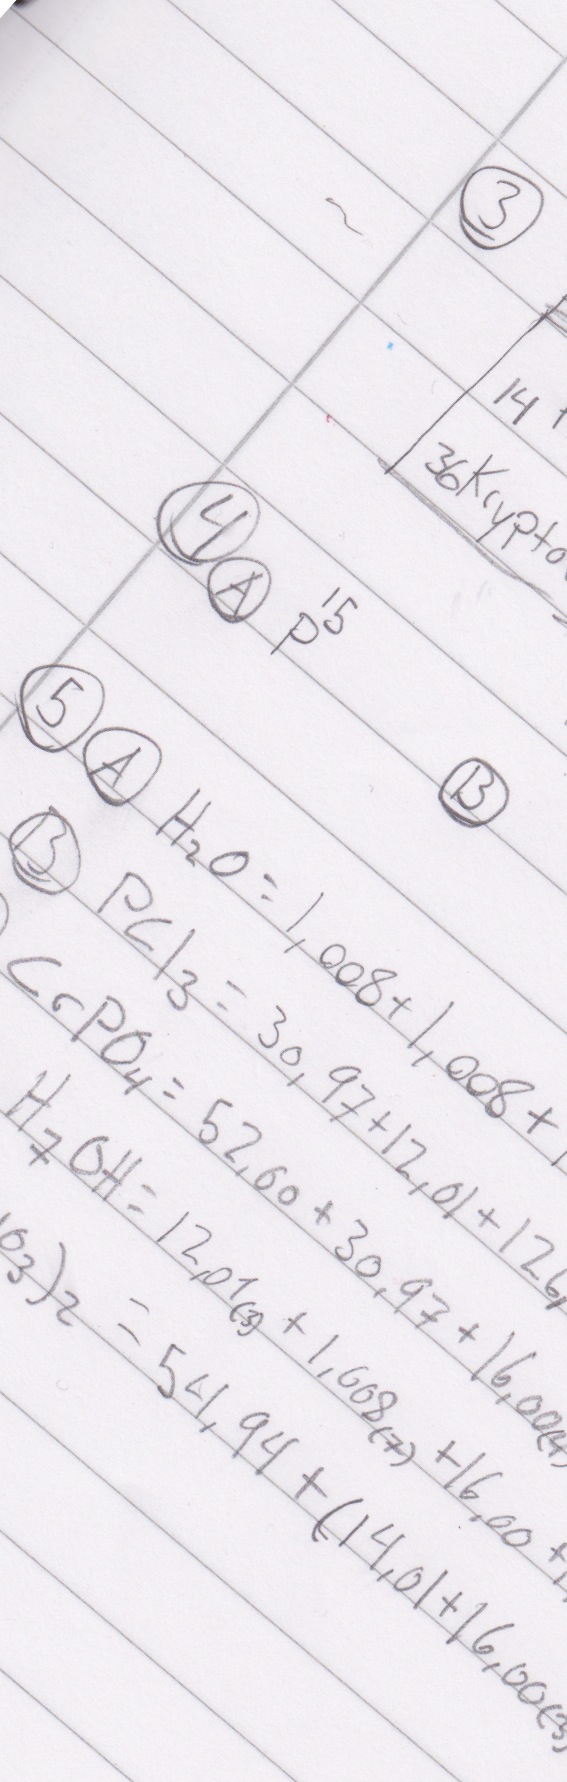 3
14 +
36 Krypto
4 A P15
B
5 A H2O = 1,008 + 1,008 + 1
B PCl3 = 30,97 + 12,01 + 126,
CrPO4 = 52,00 + 30,97 + 16,00(4)
H7OH = 12,01(3) + 1,008(7) + 16,00 + 1,
O3)2 = 54,94 + (14,01 + 16,00(3)